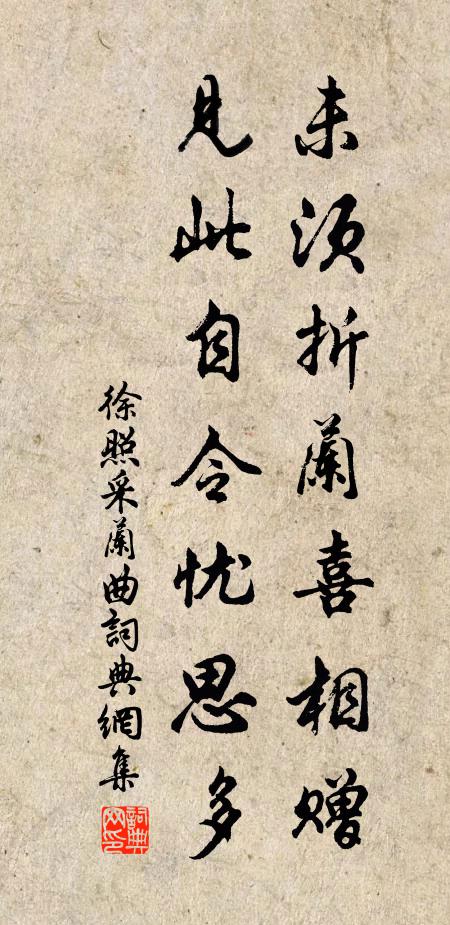 未须折蘭喜相赠
見此自令忧思多
徐照采蘭曲詞典網集
詞典
网印